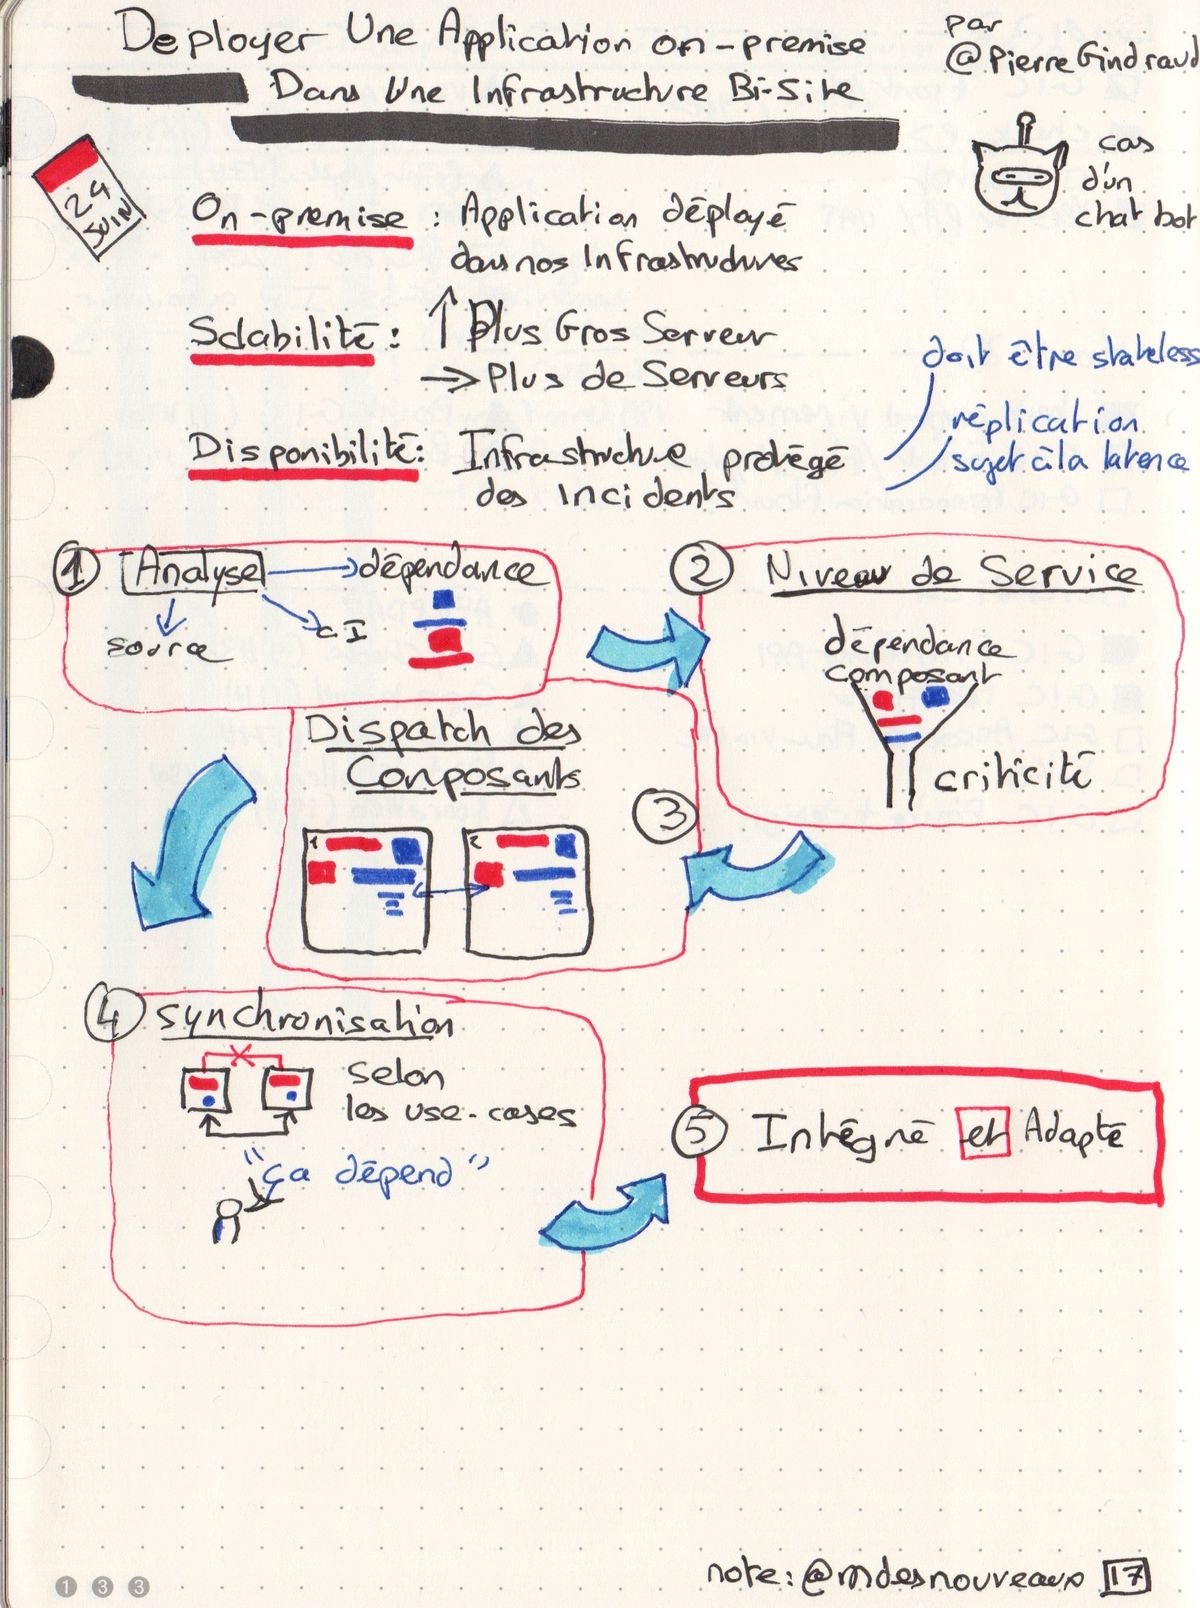 Deployer Une Application on-premise
Dans Une Infrastructure Bi-Site
par
@PierreGindraud
cas
d'un
chat bot
24
JUIN
On-premise : Application déployé
dans nos Infrastructures
Scalabilité : ↑ Plus Gros Serveur
→ Plus de Serveurs
Disponibilité : Infrastructure protégé
des Incidents
doit être stateless
réplication
sujet à la latence
1 Analyse → dépendance
source
CI
2 Niveau de Service
dépendance
composant
criticité
Dispatch des
Composants
3
1
2
4 synchronisation
selon
les use-cases
"ça dépend"
5 Intégré et Adapté
note : @mdesnouveaux 17
1 3 3